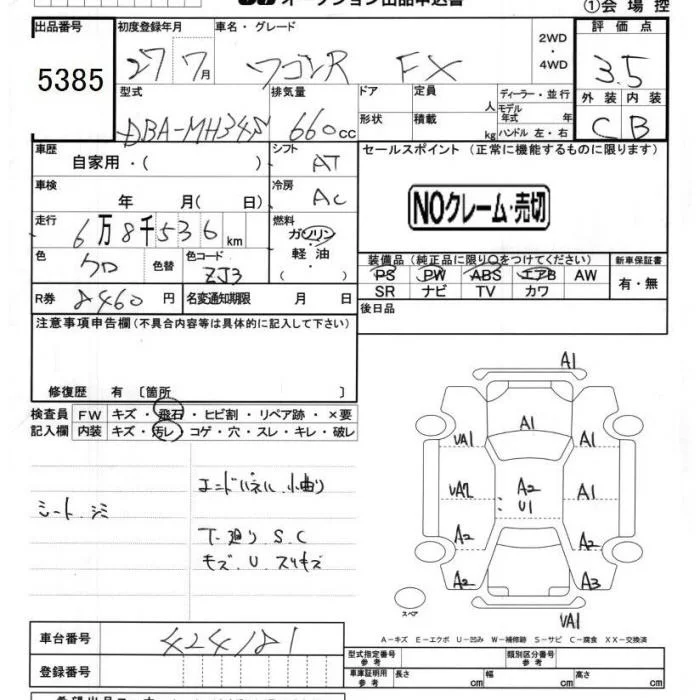 オークション出品申込書 ①会場控
出品番号 初度登録年月 車名・グレード 2WD・4WD 評価点
5385 27 7月 ワゴンR FX 3.5
型式 排気量 ドア 定員 人 ディーラー・並行 外装 内装
DBA-MH34S 660cc 形状 積載 kg モデル年式 年 ハンドル 左・右 C B
車歴 自家用・( ) シフト AT セールスポイント (正常に機能するものに限ります)
車検 年 月( 日) 冷房 AC NOクレーム・売切
走行 6万8千536km 燃料 ガソリン・軽油
色 クロ 色替 色コード ZJ3 装備品(純正品に限り○をつけてください) 新車保証書
PS PW ABS エアB AW 有・無
SR ナビ TV カワ
R券 8460円 名変通知期限 月 日 後日品
注意事項申告欄(不具合内容等は具体的に記入して下さい)
修復歴 有〔箇所 〕
検査員 FW キズ・飛石・ヒビ割・リペア跡・×要
記入欄 内装 キズ・汚レ・コゲ・穴・スレ・キレ・破レ
エンドパネル小曲り
シート シミ
下廻り S.C
キズ U スリキズ
A1
A1
UA1 A1
UA2 A2 U1 A1
A2 A2
A2 A3
スペア UA1
A－キズ E－エクボ U－凹み W－補修跡 S－サビ C－腐食 XX－交換済
車台番号 424181 型式指定番号 参考 類別区分番号 参考
登録番号 車庫証明用 参考 長さ cm 幅 cm 高さ cm